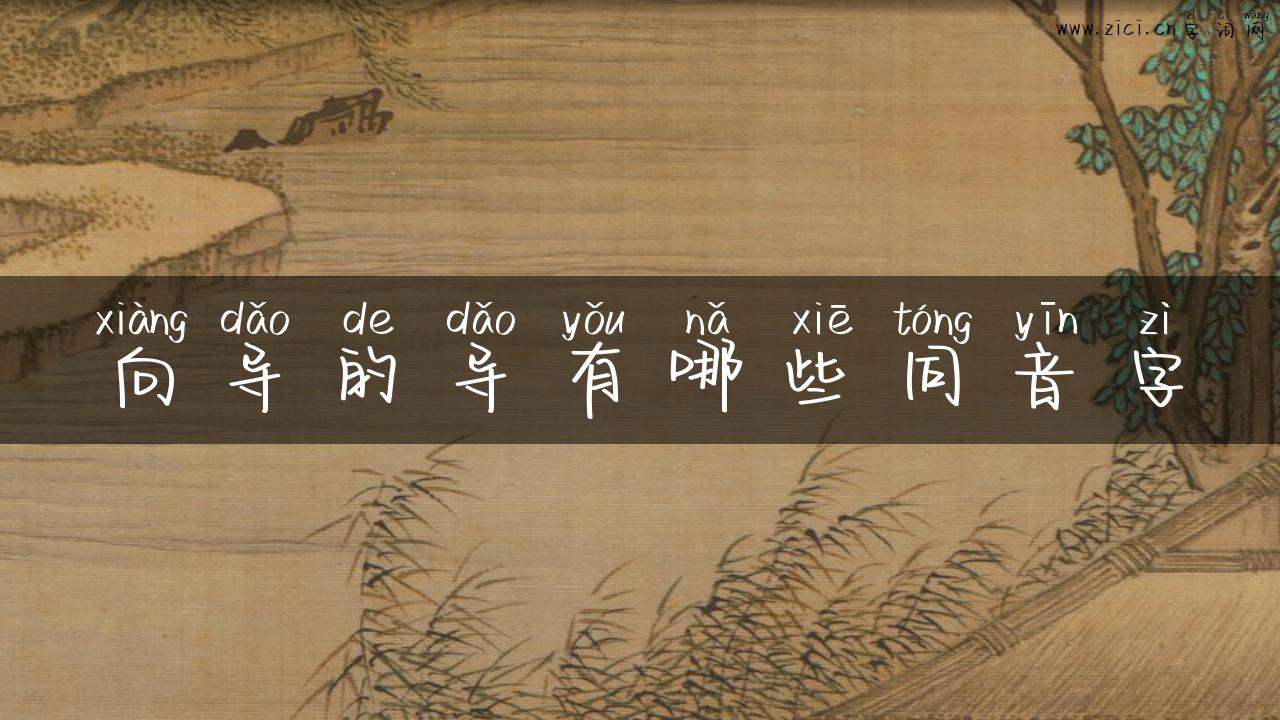 zì cí wǎng
www.zici.cn字词网
xiàng dǎo de dǎo yǒu nǎ xiē tóng yīn zì
向导的导有哪些同音字